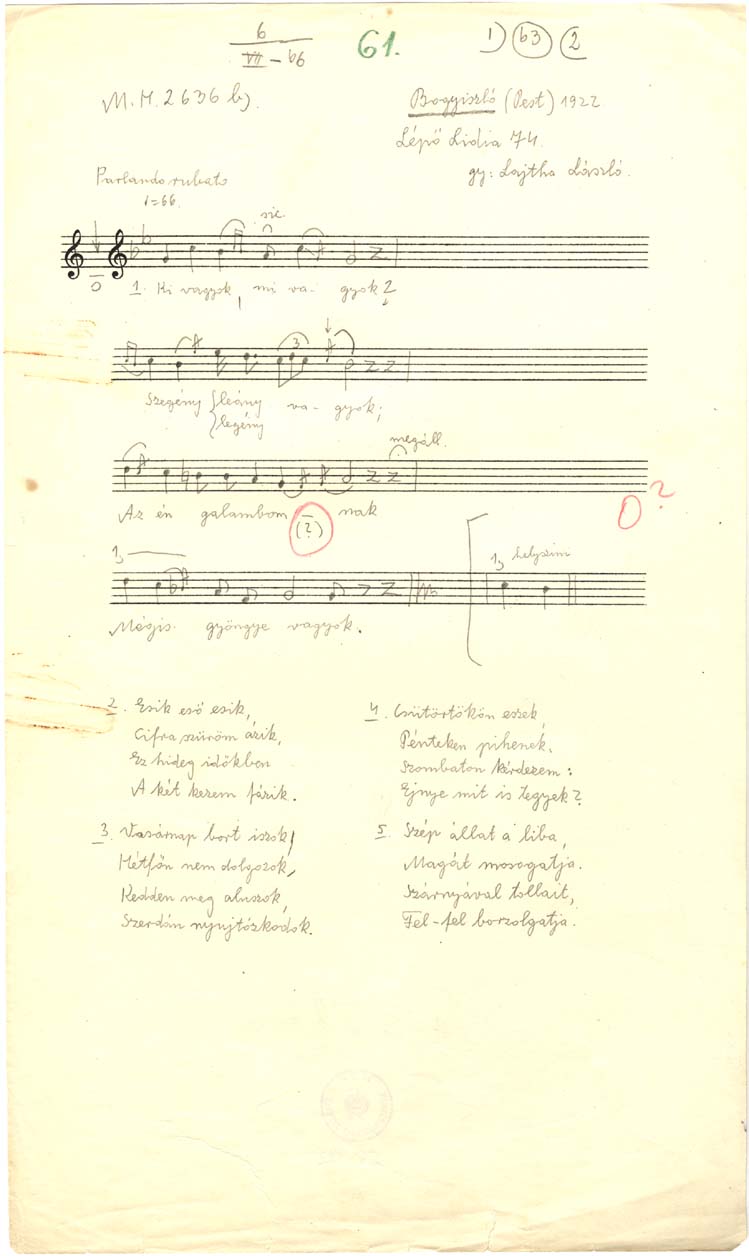 6
VII – b6
61.
1) b3 2
M. H. 2636 b).
Bogyiszló (Pest) 1922
Lépő Lidia 74.
gy: Lajtha László.
Parlando rubato
♩=66.
sic
1. Ki vagyok, mi va- gyok?
3
Szegény {leány va- gyok;
{legény
megáll.
Az én galambom (?) nak
0?
1, helyszín
Mégis gyöngye vagyok.
2. Esik eső esik,
Cifra szűröm ázik,
Ez hideg időkben
A két kezem fázik.
3. Vasárnap bort iszok,
Hétfőn nem dolgozok,
Kedden meg aluszok,
Szerdán nyujtózkodok.
4. Csütörtökön eszek,
Pénteken pihenek.
Szombaton kérdezem:
Ejnye mit is tegyek?
5. Szép állat a liba,
Magát mosogatja.
Szárnyával tollait,
Fel-fel borzolgatja.